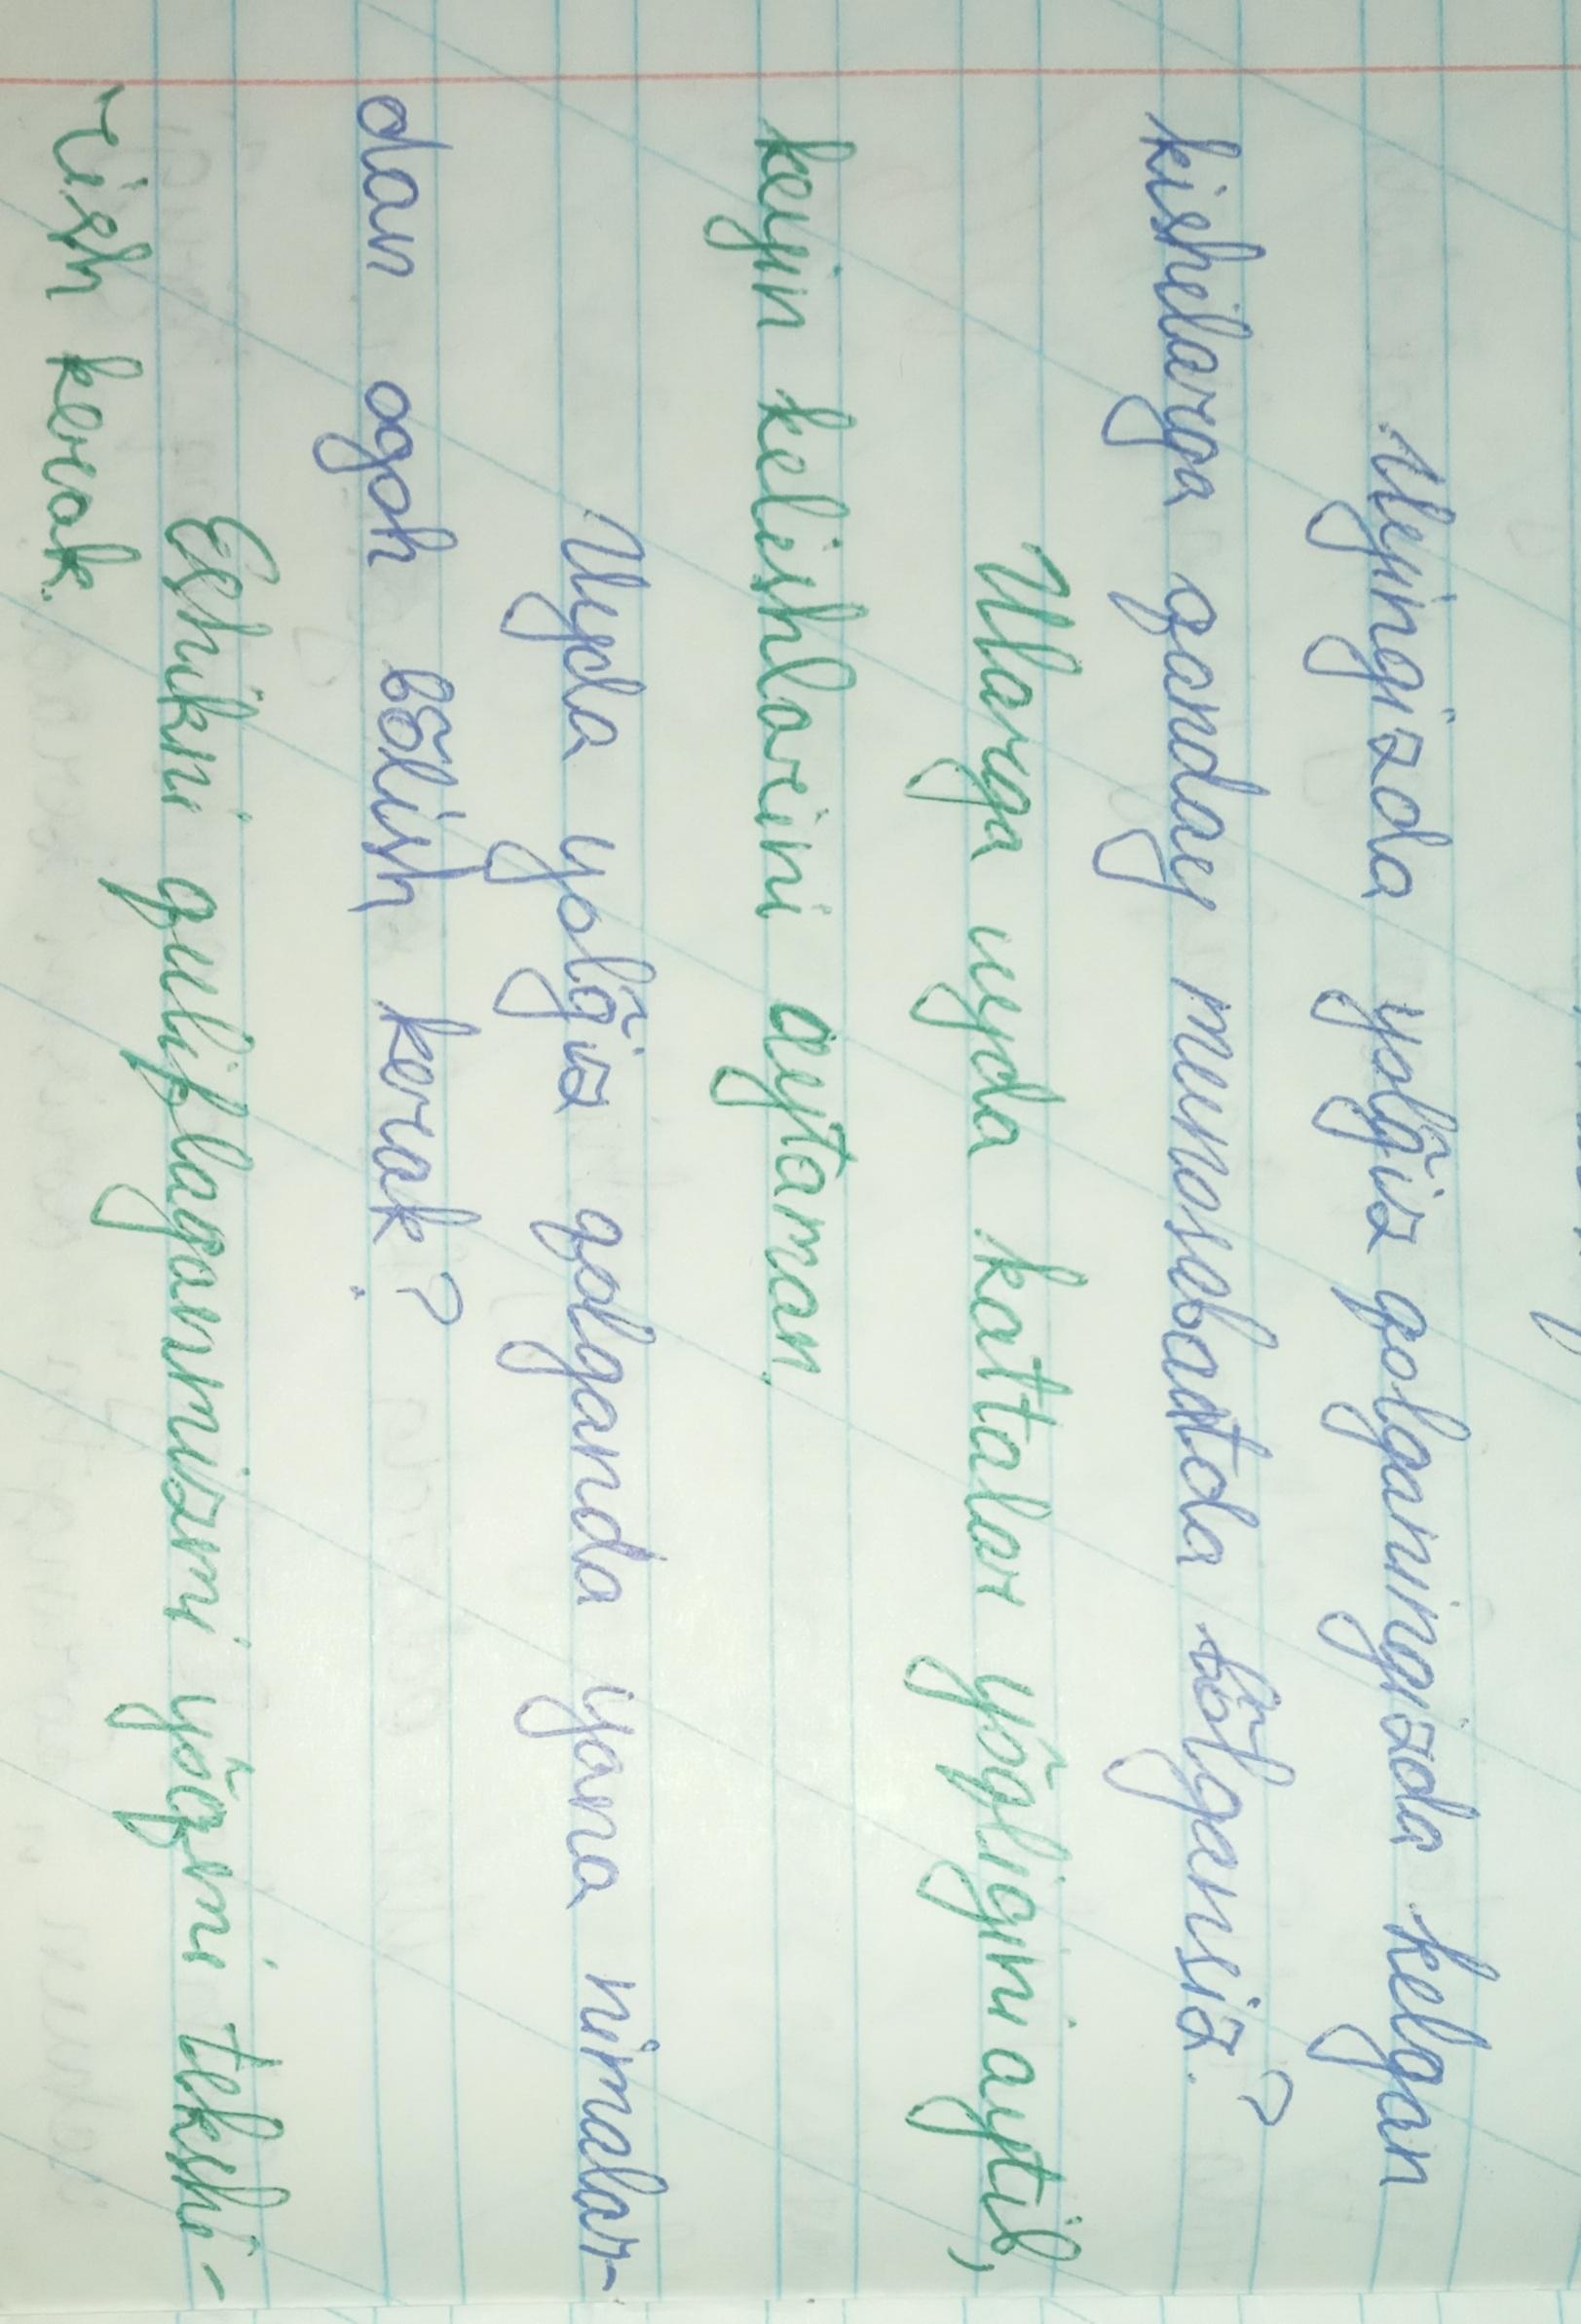 Uyingizda yolğiz qolganingizda kelgan
kishilarga qanday munosabatda bõlgansiz?
Ularga uyda kattalar yõqligini aytib,
keyin kelishlarini aytaman.
Uyda yolğiz qolganda yana nimalar-
dan ogoh bõlish kerak?
Eshikni quliflaganmizmi yõqmi tekshi-
rish kerak.